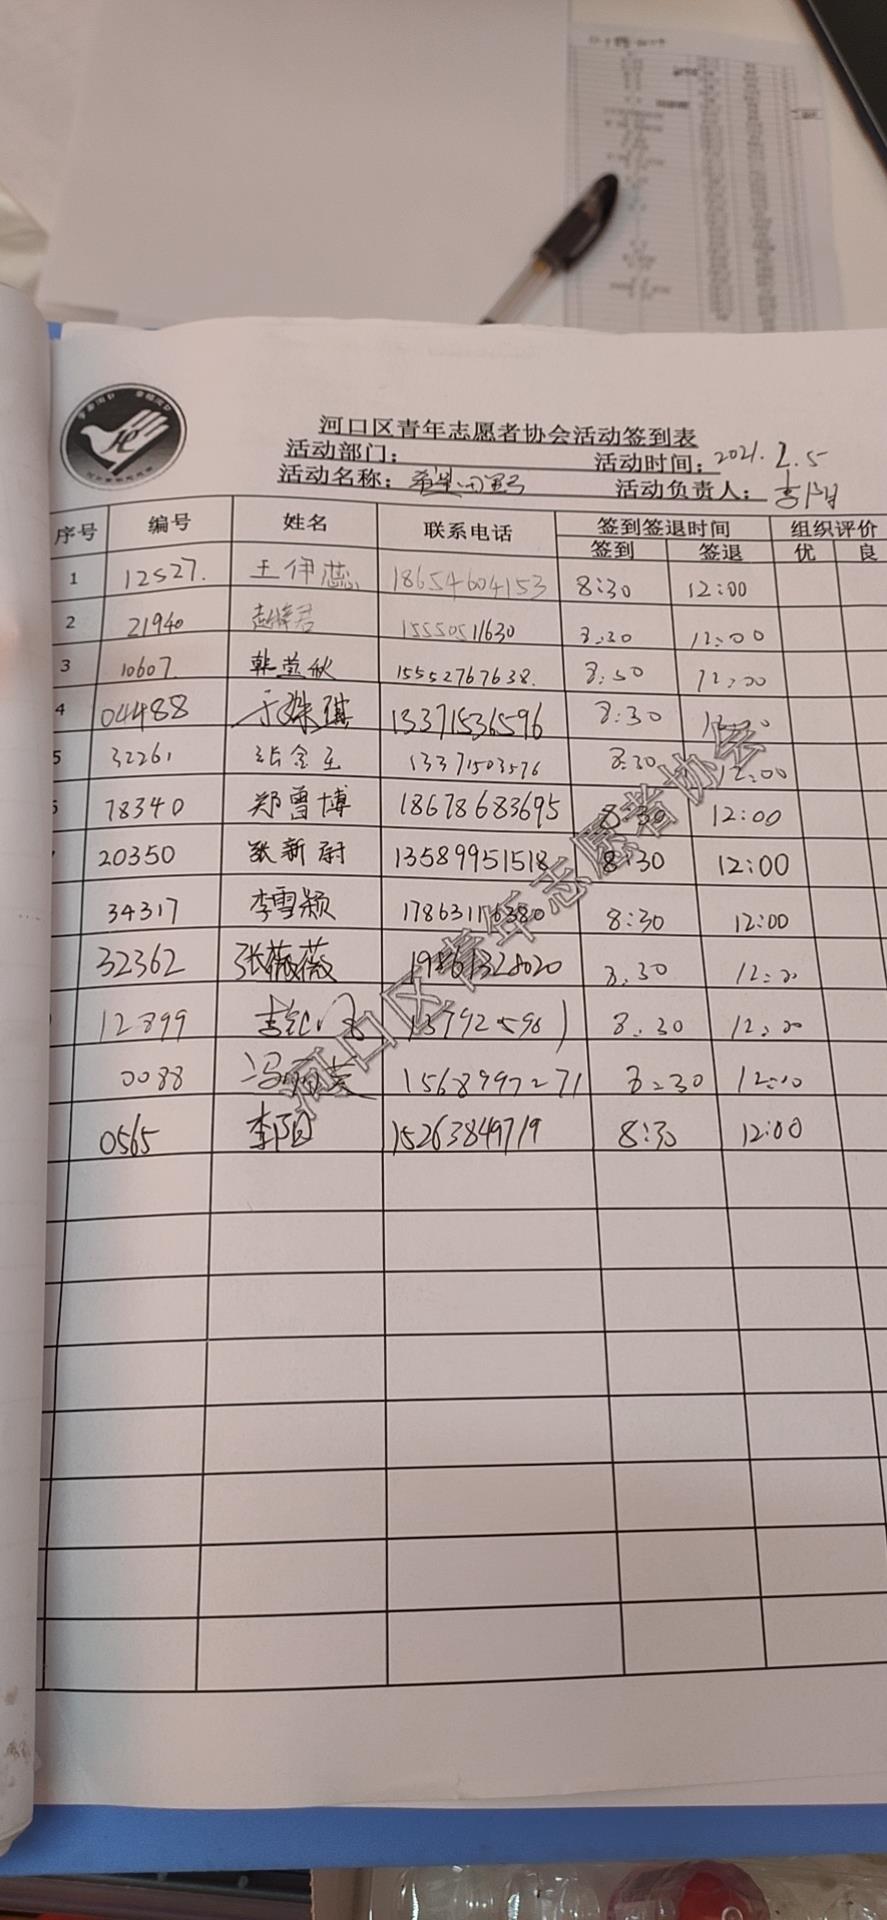 河口区青年志愿者协会活动签到表
活动部门： 活动时间：2021.2.5
活动名称：希望田野 活动负责人：李阳
序号 编号 姓名 联系电话 签到签退时间 组织评价
签到 签退 优 良
1 12527. 王伊蕊 18654604153 8:30 12:00
2 21940 15550511630 8:30 12:00
3 10607. 韩萱秋 15552767638. 8:30 12:00
4 04488 于姝琪 13371536596 8:30
5 32261 张金玉 13371503576 8:30 12:00
78340 郑曾博 18678683695 8:30 12:00
20350 张新尉 13589951518 8:30 12:00
34317 李雪颖 17863116380 8:30 12:00
32362 张薇薇 8:30 12:00
12899 8:30 12:00
0088 15689997271 8:30 12:00
0565 李阳 15263849719 8:30 12:00
河口区青年志愿者协会